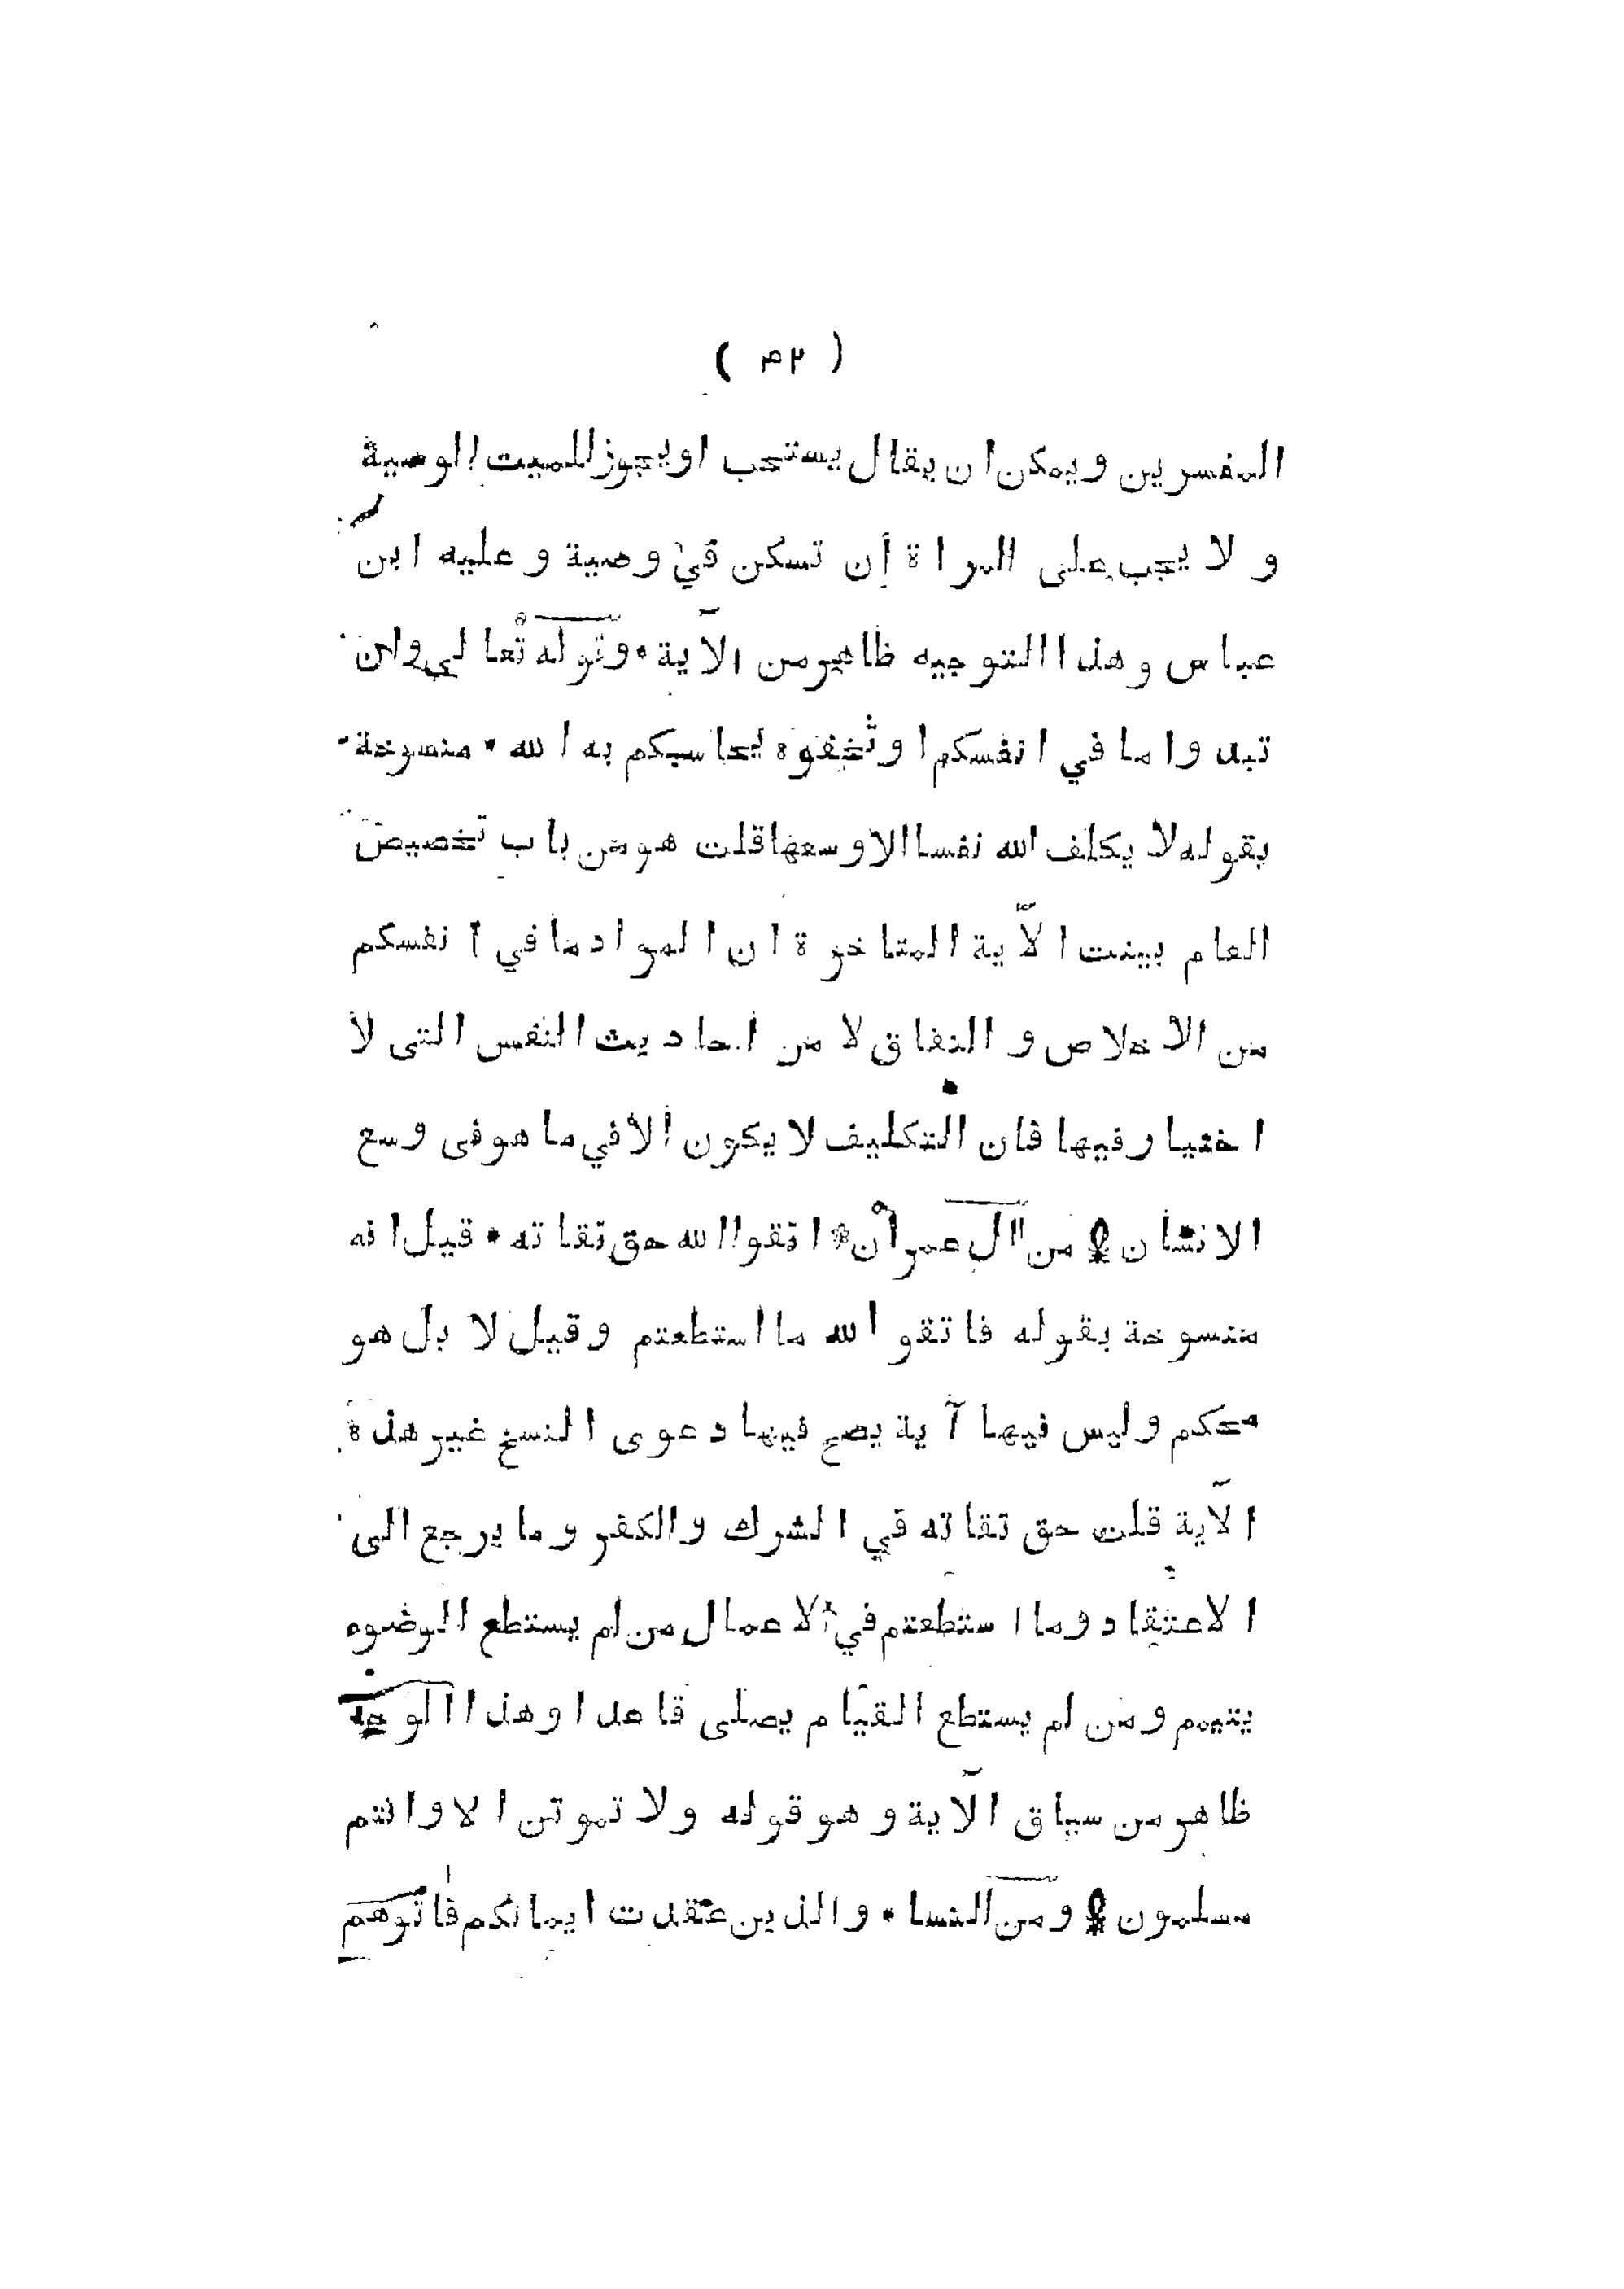 ( ۴۲ )
المفسرين ويمكن ان يقال يستحب او يجوز للميت الوصية
و لا يجب على المراة أن تسكن في وصية و عليه ابن
عباس و هذا التوجيه ظاهر من الآية * وقوله تعالى وان
تبدوا ما في انفسكم او تخفوه يحاسبكم به الله * منسوخة
بقوله لا يكلف الله نفسا الا وسعها قلت هو من باب تخصيص
العام بينت الآية المتاخرة ان المراد ما في انفسكم
من الاخلاص و النفاق لا من احاديث النفس التى لا
اختيار فيها فان التكليف لا يكون الا في ما هو فى وسع
الانسان ومن ال عمران * اتقوا الله حق تقاته * قيل انه
منسوخة بقوله فاتقو الله ما استطعتم وقيل لا بل هو
محكم وليس فيها آية يصح فيها دعوى النسخ غير هذه
الآية قلت حق تقاته في الشرك والكفر وما يرجع الى
الاعتقاد وما استطعتم في الاعمال من لم يستطع الوضوء
يتيمم ومن لم يستطع القيام يصلى قاعدا وهذا الوجه
ظاهر من سياق الآية و هو قوله ولا تموتن الا وانتم
مسلمون ومن النسا * والذين عقدت ايمانكم فاتوهم